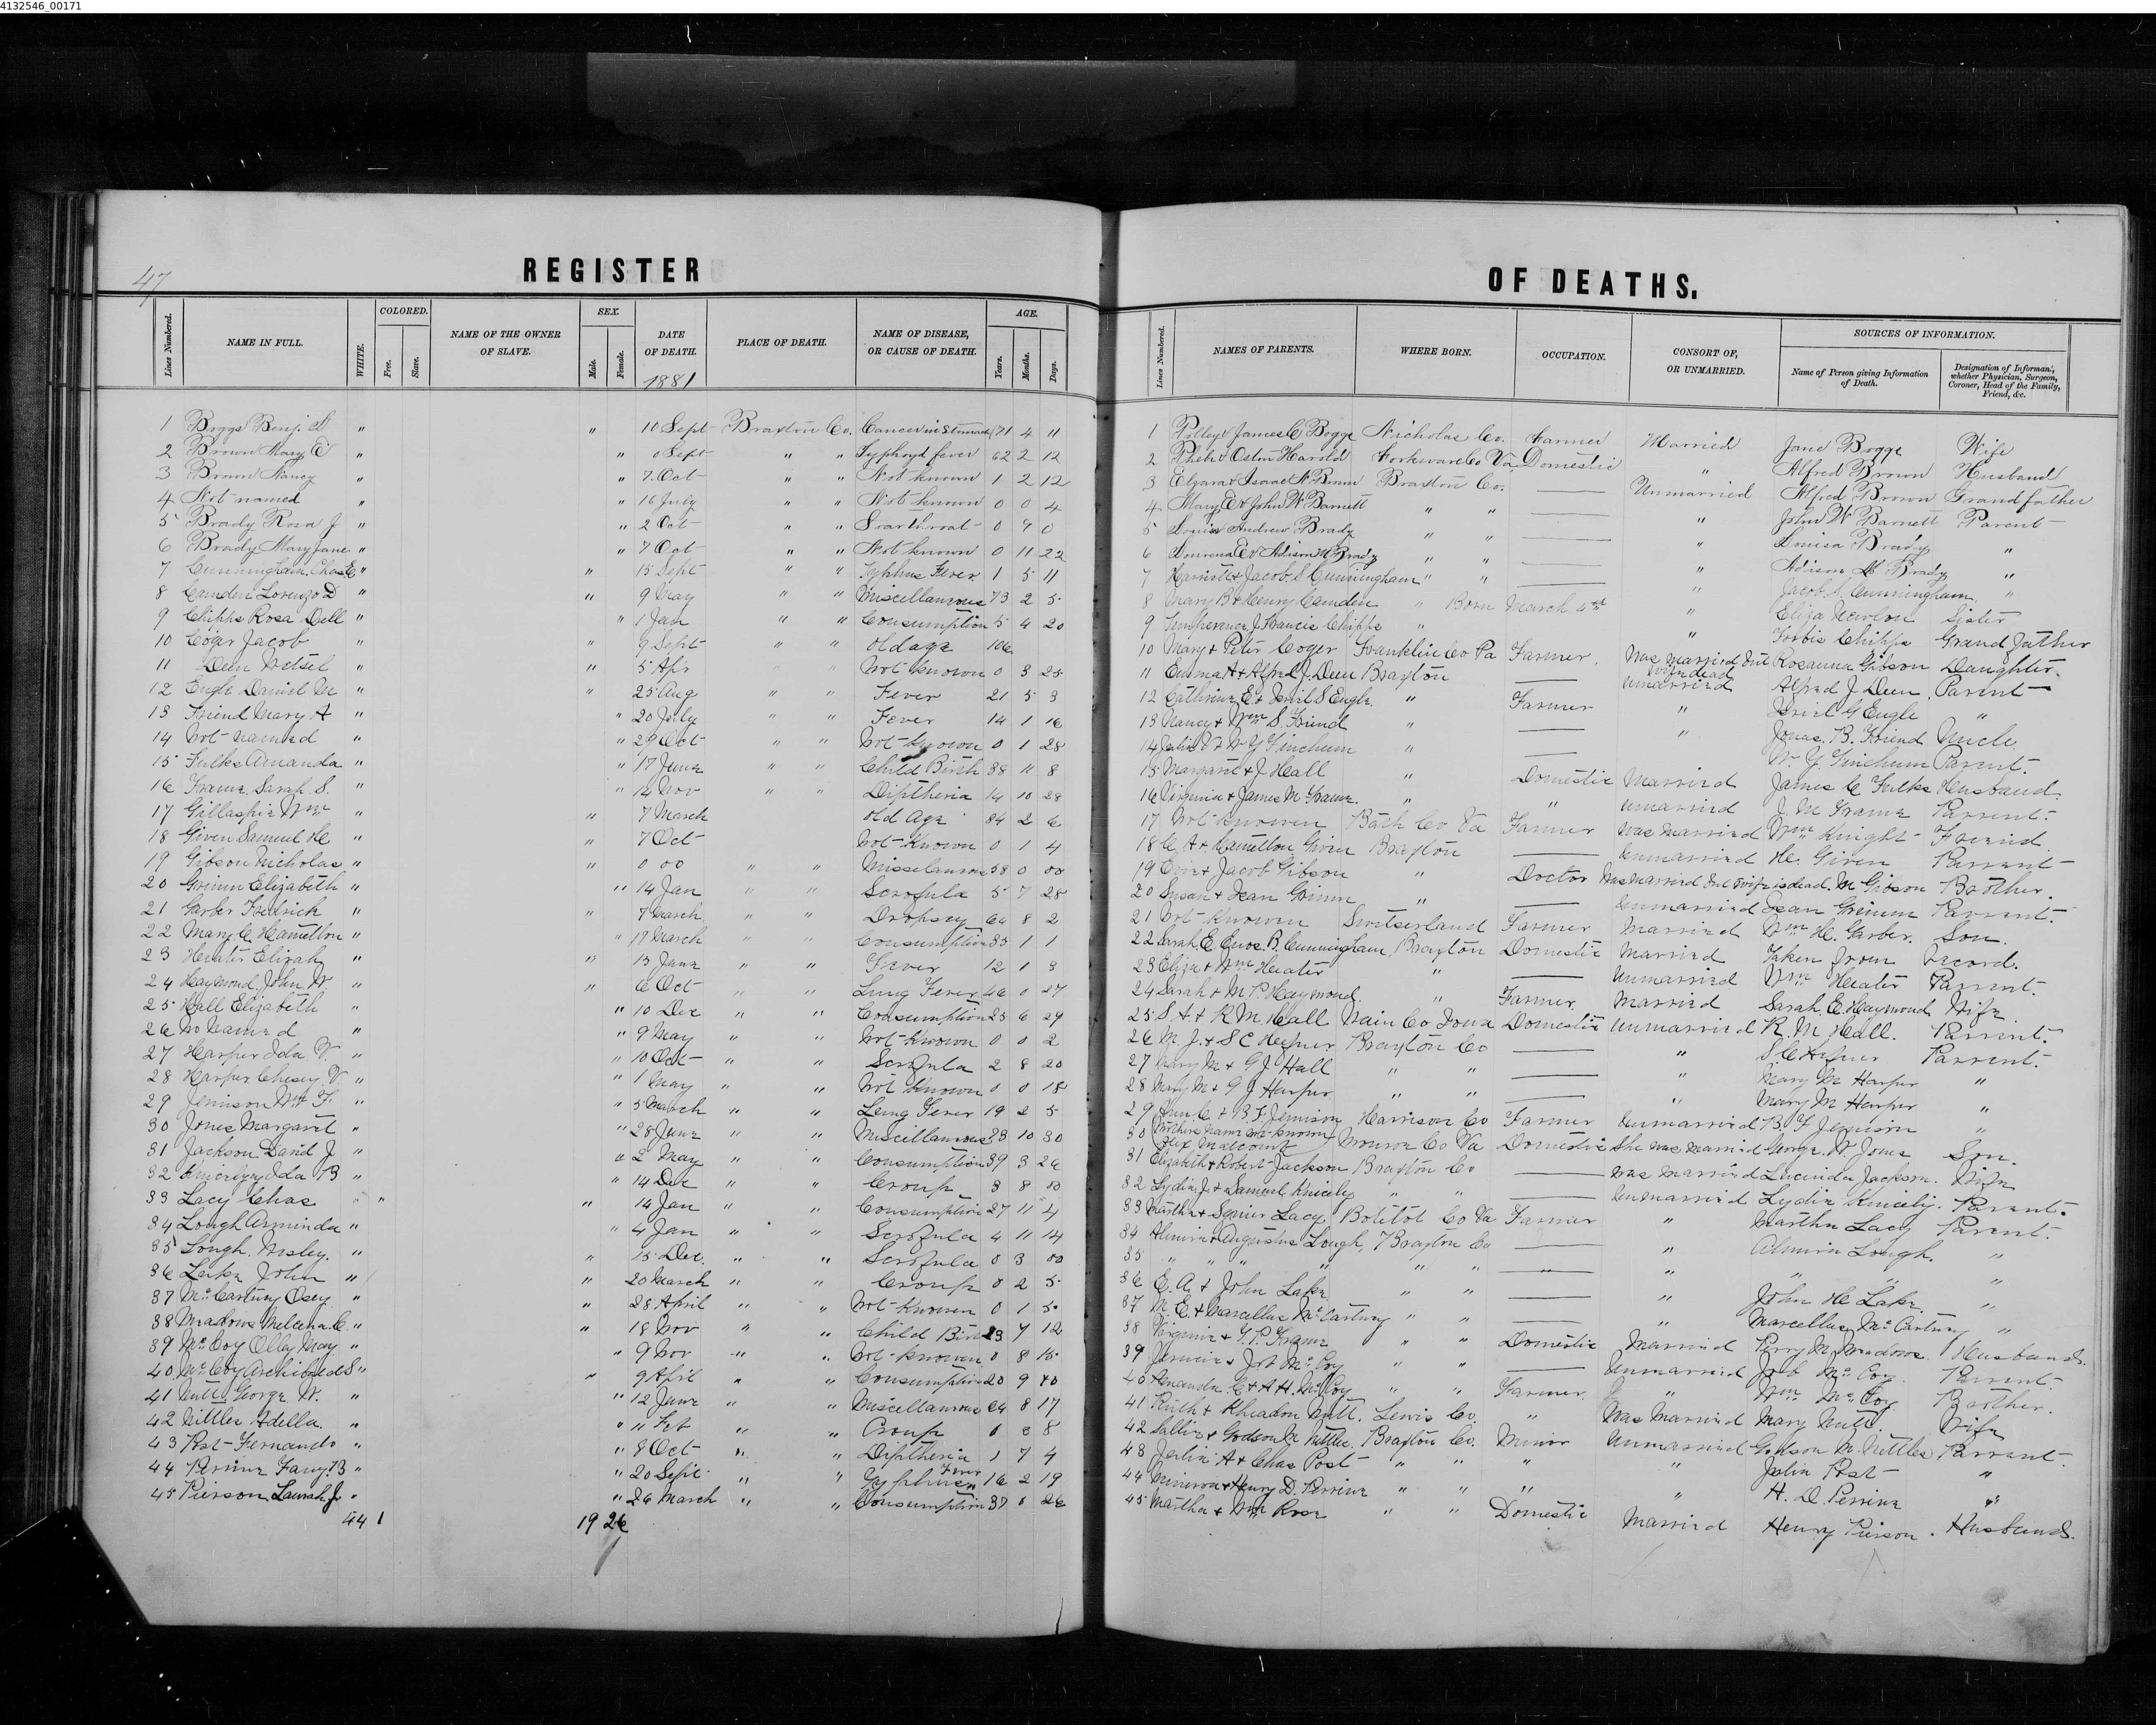 4132546_00171
47
REGISTER
Lines Numbered. NAME IN FULL. WHITE. COLORED. Free. Slave. NAME OF THE OWNER OF SLAVE. SEX. Male. Female. DATE OF DEATH. 1881 PLACE OF DEATH. NAME OF DISEASE, OR CAUSE OF DEATH. AGE. Years. Months. Days.
1 Boggs Benj. " " 10 Sept Braxton Co. Cancer in Stomach 71 4 11
2 Brown Mary E " " 6 Sept " " Typhoyd fever 62 2 12
3 Brown Nancy " " 7 Oct " " Not known 1 2 12
4 Not named " " 16 July " " Not known 0 0 4
5 Brady Rosa J " " 2 Oct " " Soar throat 0 9 0
6 Brady Mary Jane " " 7 Oct " " Not known 0 11 22
7 Cunningham Chas E " " 15 Sept " " Typhus Fever 1 5 11
8 Camden Lorenzo D " " 9 May " " Miscellanous 73 2 5
9 Chipps Rosa Dell " " 1 Jan " " Consumption 5 4 20
10 Coger Jacob " " 9 Sept " " Old age 106
11 Deen Wetsel " " 5 Apr " " Not Known 0 3 25
12 Engle Daniel M " " 25 Aug " " Fever 21 5 3
13 Friend Mary A " " 20 July " " Fever 14 1 16
14 Not named " " 29 Oct " " Not Known 0 1 28
15 Fulks Amanda " " 17 June " " Child Birth 38 11 8
16 Frame Sarah S. " " 14 Nov " " Diptheria 14 10 28
17 Gillaspie Wm " " 7 March Old Age 84 2 6
18 Given Samuel H " " 7 Oct Not Known 0 1 4
19 Gibson Nicholas " " 0 00 " " Misselanous 58 0 00
20 Grimm Elizabeth " " 14 Jan " " Scrofula 5 7 28
21 Garber Fredrick " " 7 March " " Dropsey 64 8 2
22 Mary C Hamilton " " 17 March " " Consumption 35 1 1
23 Heater Elizah " " 13 June " " Fever 12 1 3
24 Haymond, John W. " " 6 Oct " " Lung Fever 46 0 27
25 Hall Elizabeth " " 10 Dec " " Consumption 25 6 29
26 No Named " " 9 May " " Not Known 0 0 2
27 Harper Ida V. " " 10 Oct " " Scrofula 2 8 20
28 Harper Chesey V. " " 1 May " " Not Known 0 0 18
29 Jemison Wm F. " " 5 March " " Lung Fever 19 2 5
30 Jones Margaret " " 28 June " " Miscellanous 83 10 30
31 Jackson David J " " 2 May " " Consumption 39 3 26
32 Knicely Ida B " " 14 Dec " " Croup 3 8 00
33 Lacy Chas " " 14 Jan " " Consumption 27 11 4
34 Lough Arminda " " 4 Jan " " Scrofula 4 11 14
35 Lough Wesley. " " 15 Dec. " " Scrofula 0 3 00
36 Lake John " " 20 March " " Croup 0 2 5
37 McCartney Osey " " 28 April " " Not Known 0 1 5
38 Meadows Melcena C. " " 18 Nov " " Child Birth 23 7 12
39 McCoy Olley May " " 9 Nov " " Not Known 0 8 15
40 McCoy Archibald S " " 9 April " " Consumption 20 9 10
41 Nutt George W. " " 12 June " " Miscellanous 64 8 17
42 Nittles Adella. " " 11 Feb " " Croup 8 8
43 Post Fernando " " 8 Oct " " Diptheria 1 7 4
44 Perrine Fany B " " 20 Sept " " Typhus Fever 16 2 19
45 Pierson Laurah J. " " 26 March " " Consumption 37 26
44 1 19 26
OF DEATHS.
Lines Numbered. NAMES OF PARENTS. WHERE BORN. OCCUPATION. CONSORT OF, OR UNMARRIED. SOURCES OF INFORMATION. Name of Person giving Information of Death. Designation of Informant, whether Physician, Surgeon, Coroner, Head of the Family, Friend, &c.
1 Polley & James C Boggs Nicholas Co. Farmer Married Jane Boggs Wife
2 Phebe & Harold Va Domestic " Alfred Brown Husband
3 Isaac N Brown Braxton Co. Unmarried Alfred Brown Grandfather
4 Mary E & John W Barnett " " " John W Barnett Parent
5 Louisa Andrew Brady " " " Louisa Brady "
6 & Adison M Brady " " " Adison M Brady "
7 Harriet & Jacob S Cunningham " " " Jacob S Cunningham "
8 Mary B & Henry Camden " Born March " Eliza Newlon Sister
9 Temperance J Francis Chipps " " Chipps Grand father
10 Mary & Peter Coger Franklin Co Pa Farmer. Was married but wife dead Rosanna Gibson Daughter.
11 Emma A & Alfred J. Deen Braxton Unmarried Alfred J Deen. Parent
12 Cathrine E & S Engle " Farmer " G Engle "
13 Nancy & Wm S. Friend " " Jonas B. Friend Uncle
14 & W Y Finchum " W. Y. Finchum Parent.
15 Margaret & J Hall " Domestic Married James C Fulks Husband.
16 Virginia & James M. Frame " " Unmarried J. M Frame Parrent.
17 Not Knowen Bath Co Va Farmer Was Married Wm Knight Freind.
18 C A & Hamilton Given Braxton Unmarried H. Given Parrent
19 & Jacob Gibson " Doctor Was married but wife is dead. M Gibson Brother.
20 Susan & Jean Grimm " Unmarried Jean Grimm Parrent.
21 Not Knowen Switserland Farmer Married Wm H. Garber. Son.
22 Sarah E Enos. B. Cunningham, Braxton Domestic Married Taken from Record.
23 Eliza & Wm Heater " Unmarried Wm Heater Parrent.
24 Sarah & M. P. Haymond. " Farmer Married Sarah E. Haymond Wife
25 S. A & R M. Hall Co Iowa Domestic Unmarried R. M Hall. Parrent.
26 M. J. & S C Hefner Braxton Co " S C Hefner Parrent.
27 Mary M & G J Hall " " " Mary M Harper "
28 Mary M & G J Harper " " " Mary M Harper "
29 & B F Jemison Harrison Co Farmer Unmarried B. F Jemison "
30 Mothers Name not Known Malcomb Monroe Co Va Domestic She was Married George W. Jones Son.
31 Elizabeth & Robert Jackson Braxton Co Was Married Lucinda Jackson. Wife
32 Lydia J. & Samuel Knicely " " Unmarried Lydia Knicely. Parent.
33 Martha & Lacy Botetot Co Va Farmer " Martha Lacy Parent.
34 Almira & Augustus Lough, Braxton Co " Almira Lough. "
35 " " " " " " " " " "
36 E. A. & John Lake " " " John H Lake "
37 M. E & Marcellus McCartney " " " Marcellus McCartney "
38 Virginia & Frame " " Domestic Married Perry M. Meadows Husband.
39 & Job McCoy " " Unmarried Job McCoy Parrent.
40 Amanda E & A H. McCoy " " Farmer " Wm McCoy Brother.
41 Ruth & Nutt. Lewis Co. " Was Married Mary Nutt Wife
42 Sallie & Godson M Nittles. Braxton Co. Minor Unmarried Godson M. Nittles Parrent.
43 A & Chas Post " " " Post "
44 Minerva & Henry D. Perrine " " " " H. D. Perrine "
45 Martha & Wm Rose " " Domestic Married Henry Pierson. Husband.